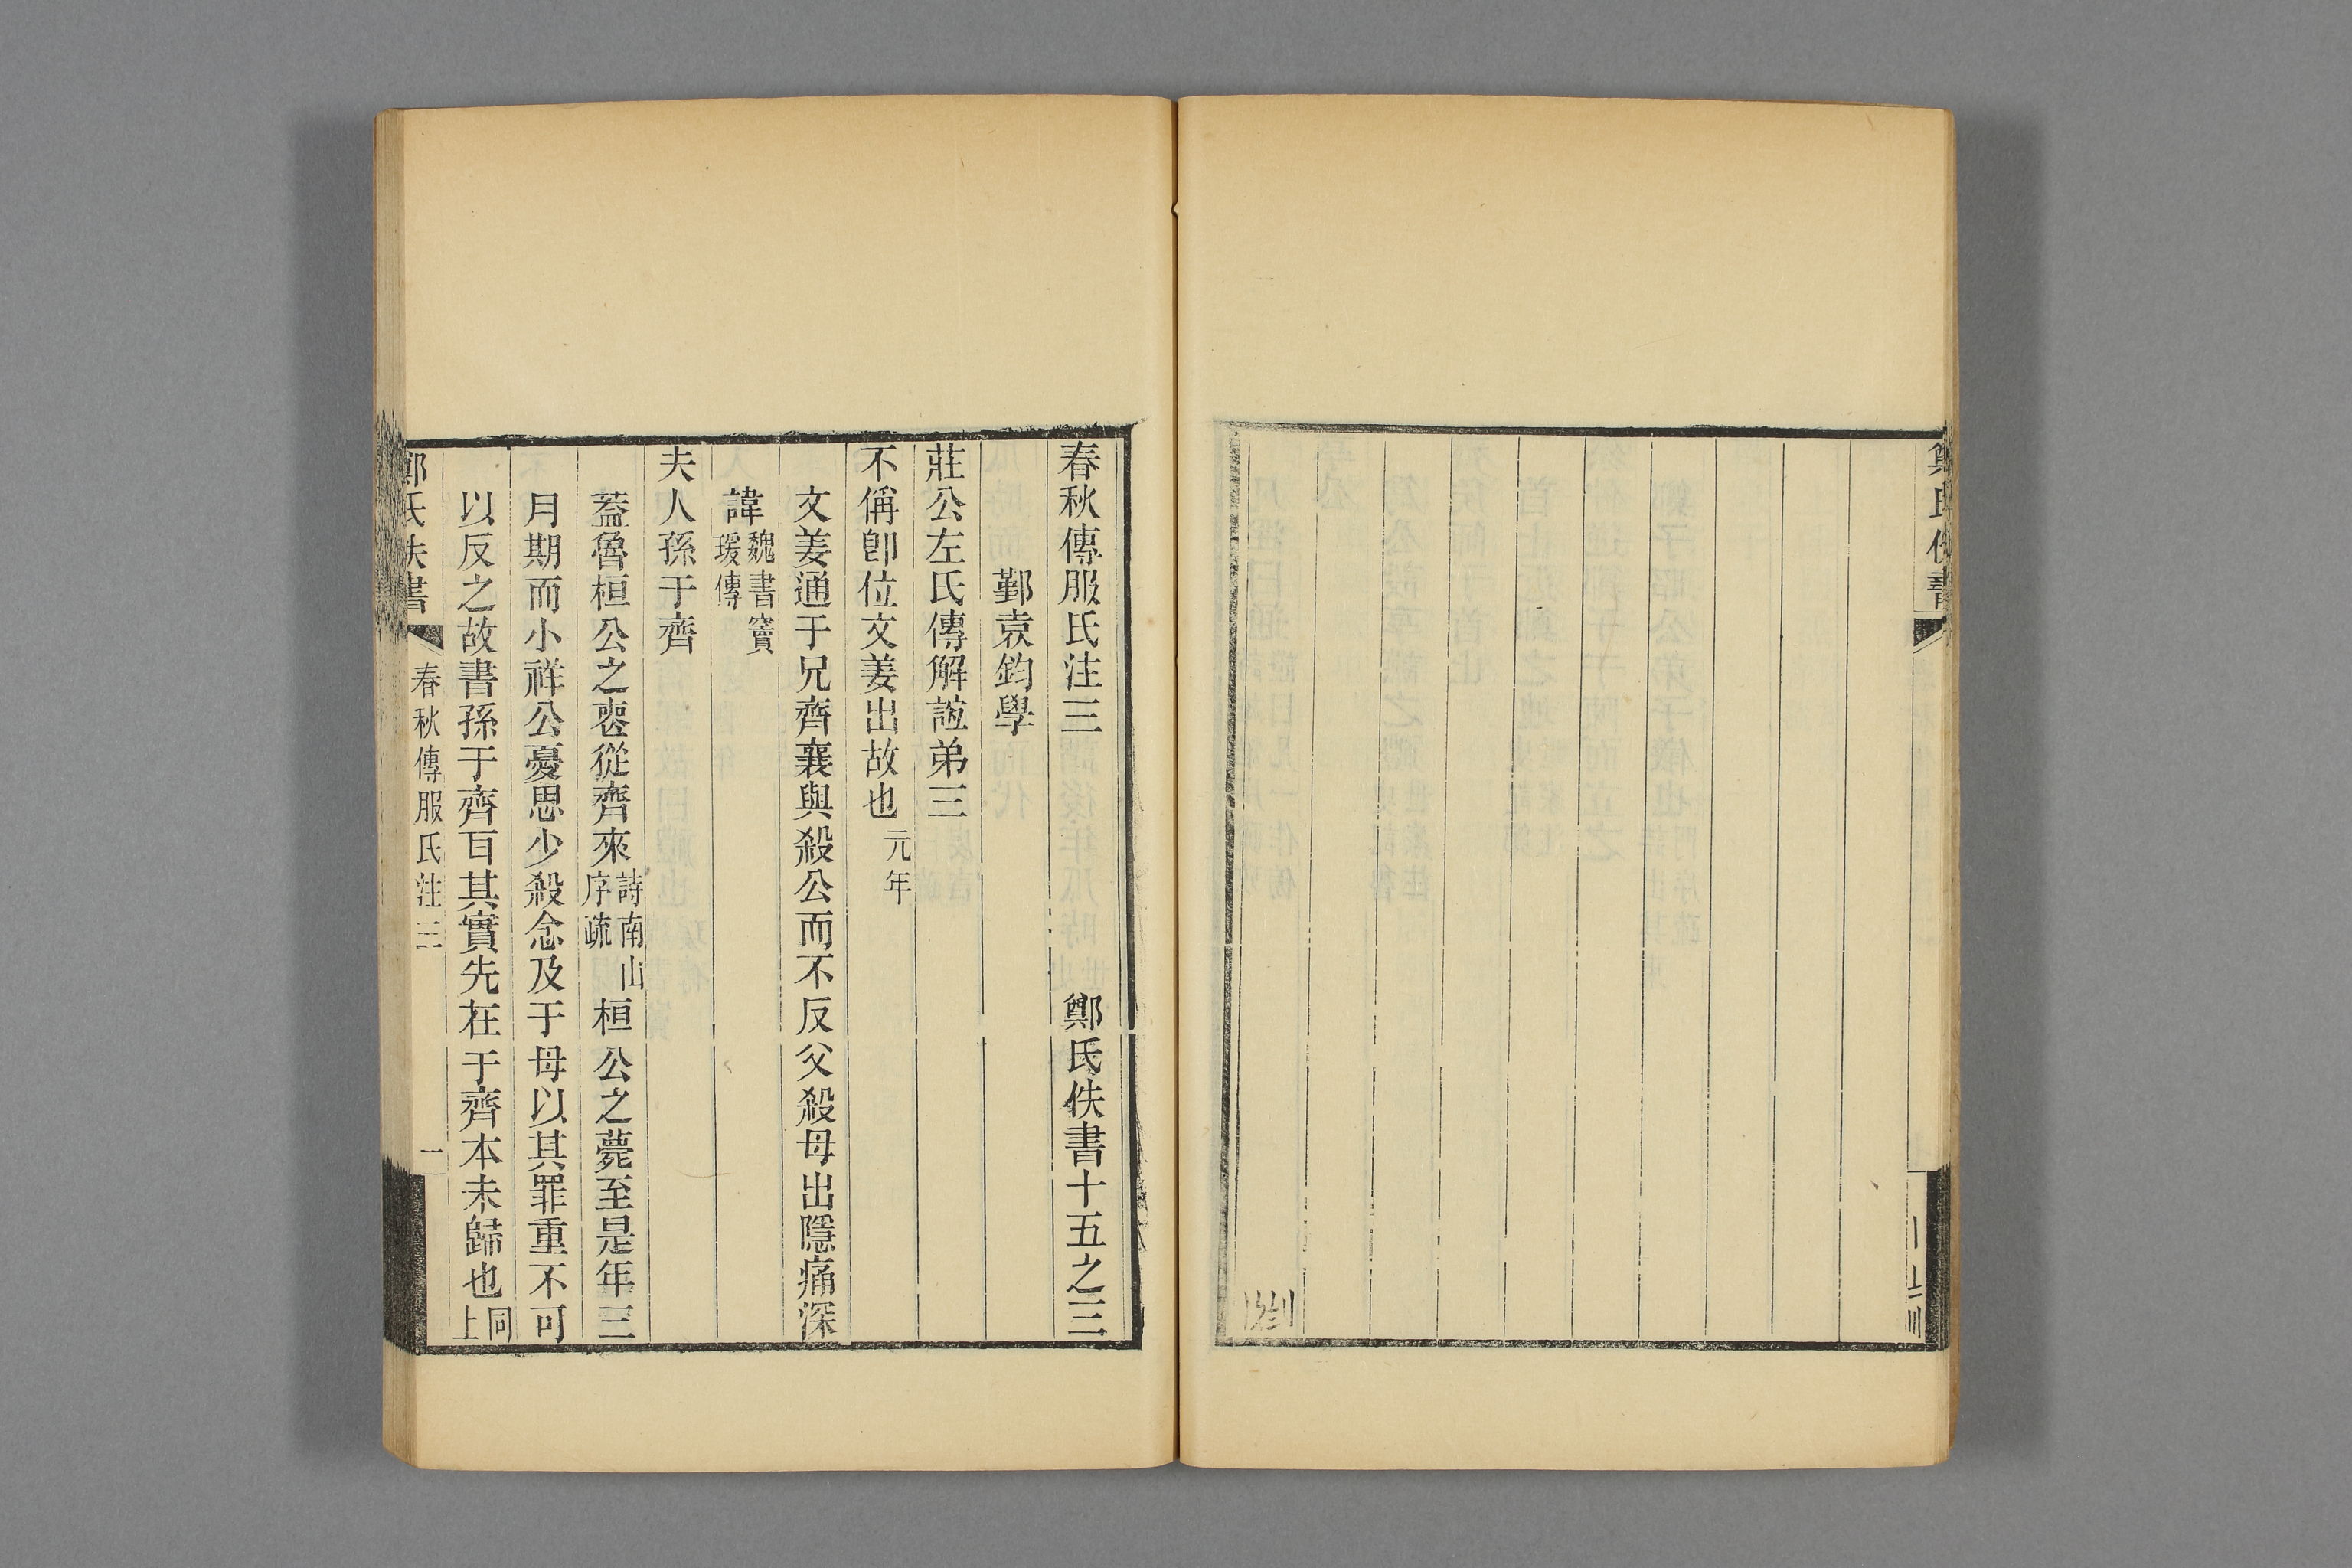 鄭氏佚書
春秋傳服氏注三 鄭氏佚書十五之三
鄞袁鈞學
莊公左氏傳解誼弟三
不偁卽位文姜出故也元年
文姜通于兄齊襄與殺公而不反父殺母出隱痛深
諱魏書竇瑗傳
夫人孫于齊
蓋魯桓公之喪從齊來詩南山序疏桓公之薨至是年三
月期而小祥公憂思少殺念及于母以其罪重不可
以反之故書孫于齊耳其實先在于齊本未歸也同上
鄭氏佚書 春秋傳服氏注三 一